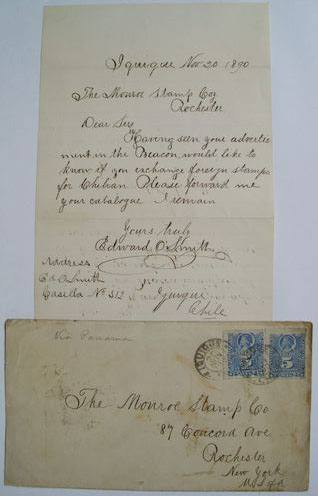 Iquique Nov 20 1890
The Monroe Stamp Coy
Rochester
Dear Sirs
Having seen your advertise
ment in the Beacon, would like to
know if you exchange foreign stamps
for Chilian Please forward me
your catalogue I remain
Yours truly
Edward O Smith
Address
Ed O Smith
Casilla No 312 Iquique
Chile
Via Panama
IQUIQUE
5 5
The Monroe Stamp Co
87 Concord Ave
Rochester
New York
U S of A